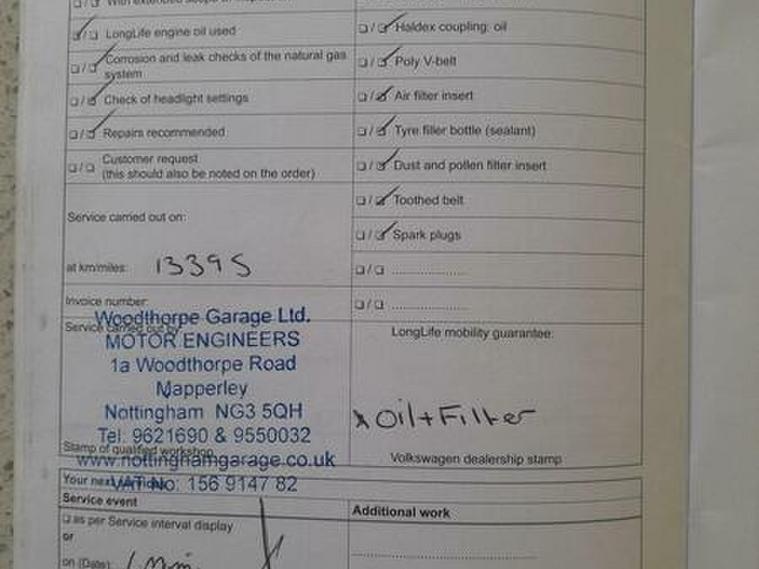 With extended scope of inspection
LongLife engine oil used
Corrosion and leak checks of the natural gas
system
Check of headlight settings
Repairs recommended
Customer request
(this should also be noted on the order)
Service carried out on:
at km/miles: 13395
Invoice number:
Service carried out by:
Woodthorpe Garage Ltd.
MOTOR ENGINEERS
1a Woodthorpe Road
Mapperley
Nottingham NG3 5QH
Tel: 9621690 & 9550032
www.nottinghamgarage.co.uk
VAT No: 156 9147 82
Stamp of qualified workshop
Haldex coupling: oil
Poly V-belt
Air filter insert
Tyre filler bottle (sealant)
Dust and pollen filter insert
Toothed belt
Spark plugs
LongLife mobility guarantee:
Oil + Filter
Volkswagen dealership stamp
Your next
Service event
as per Service interval display
or
on (Date):
Additional work